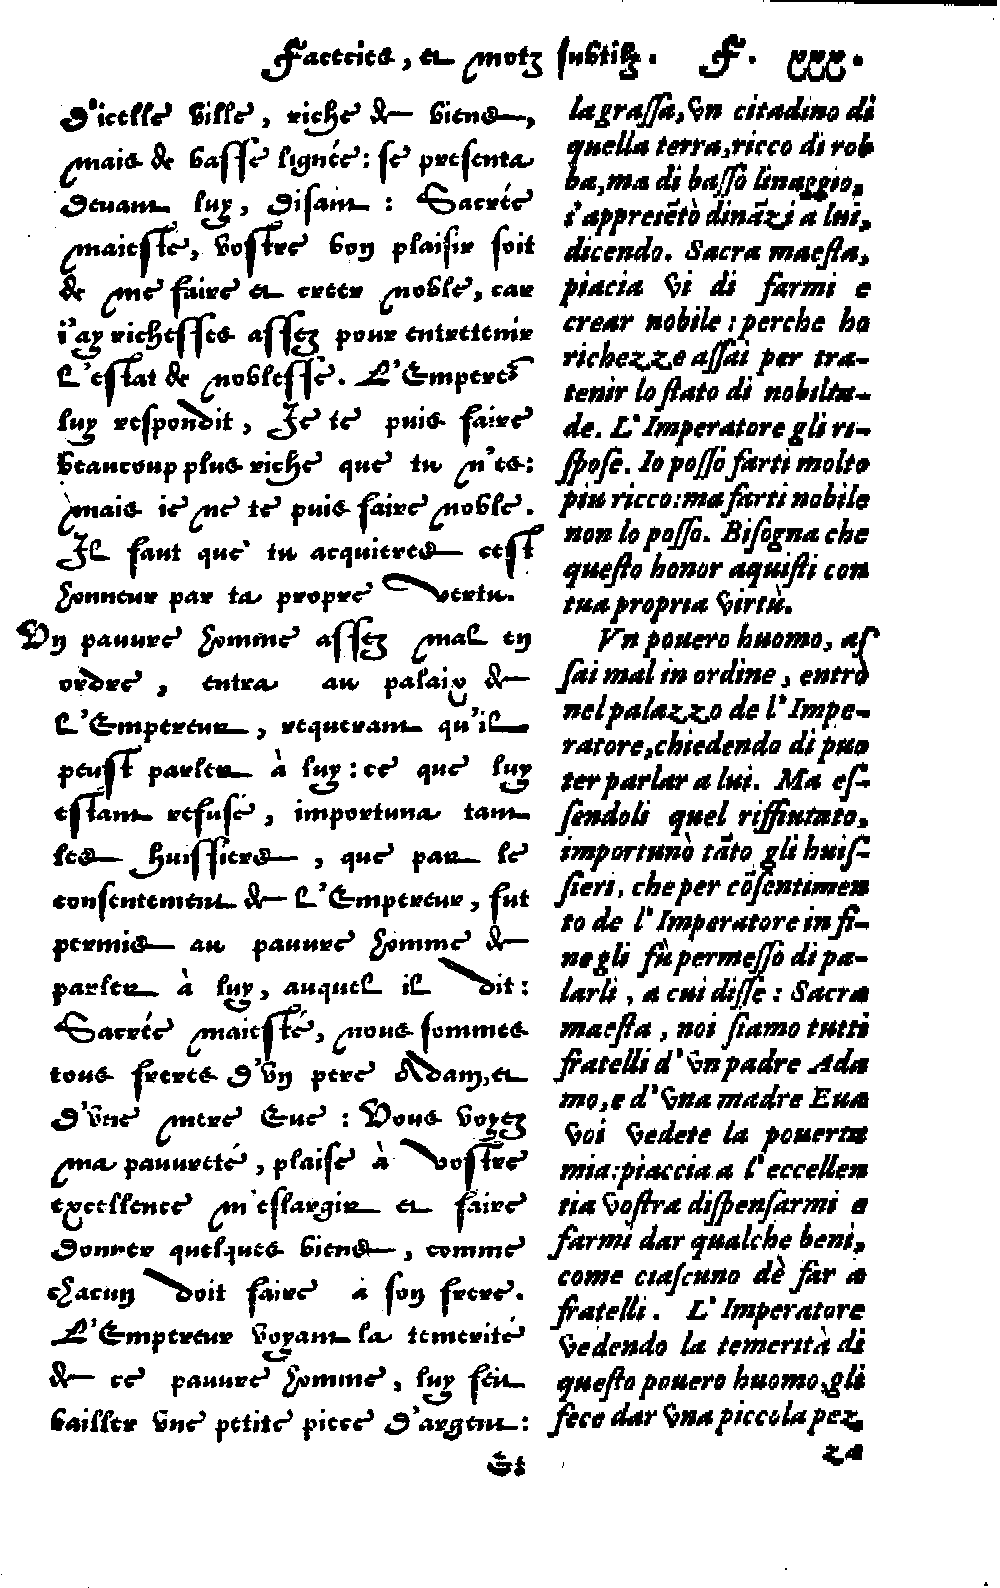 Facecies, et motz subtilz. F. xxx.
d'icelle ville, riche de biens,
mais de basse lignée: se presenta
deuant luy, disant: Sacrée
maiesté, vostre bon plaisir soit
de me faire et creer noble, car
i'ay richesses assez pour entretenir
l'estat de noblesse. L'Emperer̃
luy respondit, Je te puis faire
beaucoup plus riche que tu n'es:
mais ie ne te puis faire noble.
Il faut que tu acquieres cest
honneur par ta propre vertu.
Vn pauure homme assez mal en
ordre, entra au palais de
l'Empereur, requerant qu'il
peust parler à luy: ce que luy
estant refusé, importuna tant
les huissiers, que par le
consentement de l'Empereur, fut
permis au pauure homme de
parler à luy, auquel il dit:
Sacrée maiesté, nous sommes
tous freres d'vn pere Adam, et
d'vne mere Eue: Vous voyez
ma pauureté, plaise à vostre
excellence m'eslargir et faire
donner quelques biens, comme
chacun doit faire à son frere.
L'Empereur voyant la temerité
de ce pauure homme, luy feit
bailler vne petite piece d'argent:
Et
la grassa, vn citadino di
quella terra, ricco di rob
ba, ma di basso linaggio,
s'appresētò dināzi a lui,
dicendo. Sacra maesta,
piacia vi di farmi e
crear nobile: perche ho
richezze assai per tra-
tenir lo stato di nobiltu-
de. L'Imperatore gli ri-
spose. Io posso farti molto
piu ricco: ma farti nobile
non lo posso. Bisogna che
questo honor aquisti con
tua propria virtù.
Vn pouero huomo, as
sai mal in ordine, entrò
nel palazzo de l'Impe-
ratore, chiedendo di puo
ter parlar a lui. Ma es-
sendoli quel riffiutato,
importunò tāto gli huis-
sieri, che per cōsentimen
to de l'Imperatore in fi-
ne gli fù permesso di pa-
larli, a cui disse: Sacra
maesta, noi siamo tutti
fratelli d'vn padre Ada
mo, e d'vna madre Eua
voi vedete la pouerta
mia: piaccia a l'eccellen
tia vostra dispensarmi e
farmi dar qualche beni,
come ciascuno dè far a
fratelli. L'Imperatore
vedendo la temerità di
questo pouero huomo, gli
fece dar vna piccola pez
za